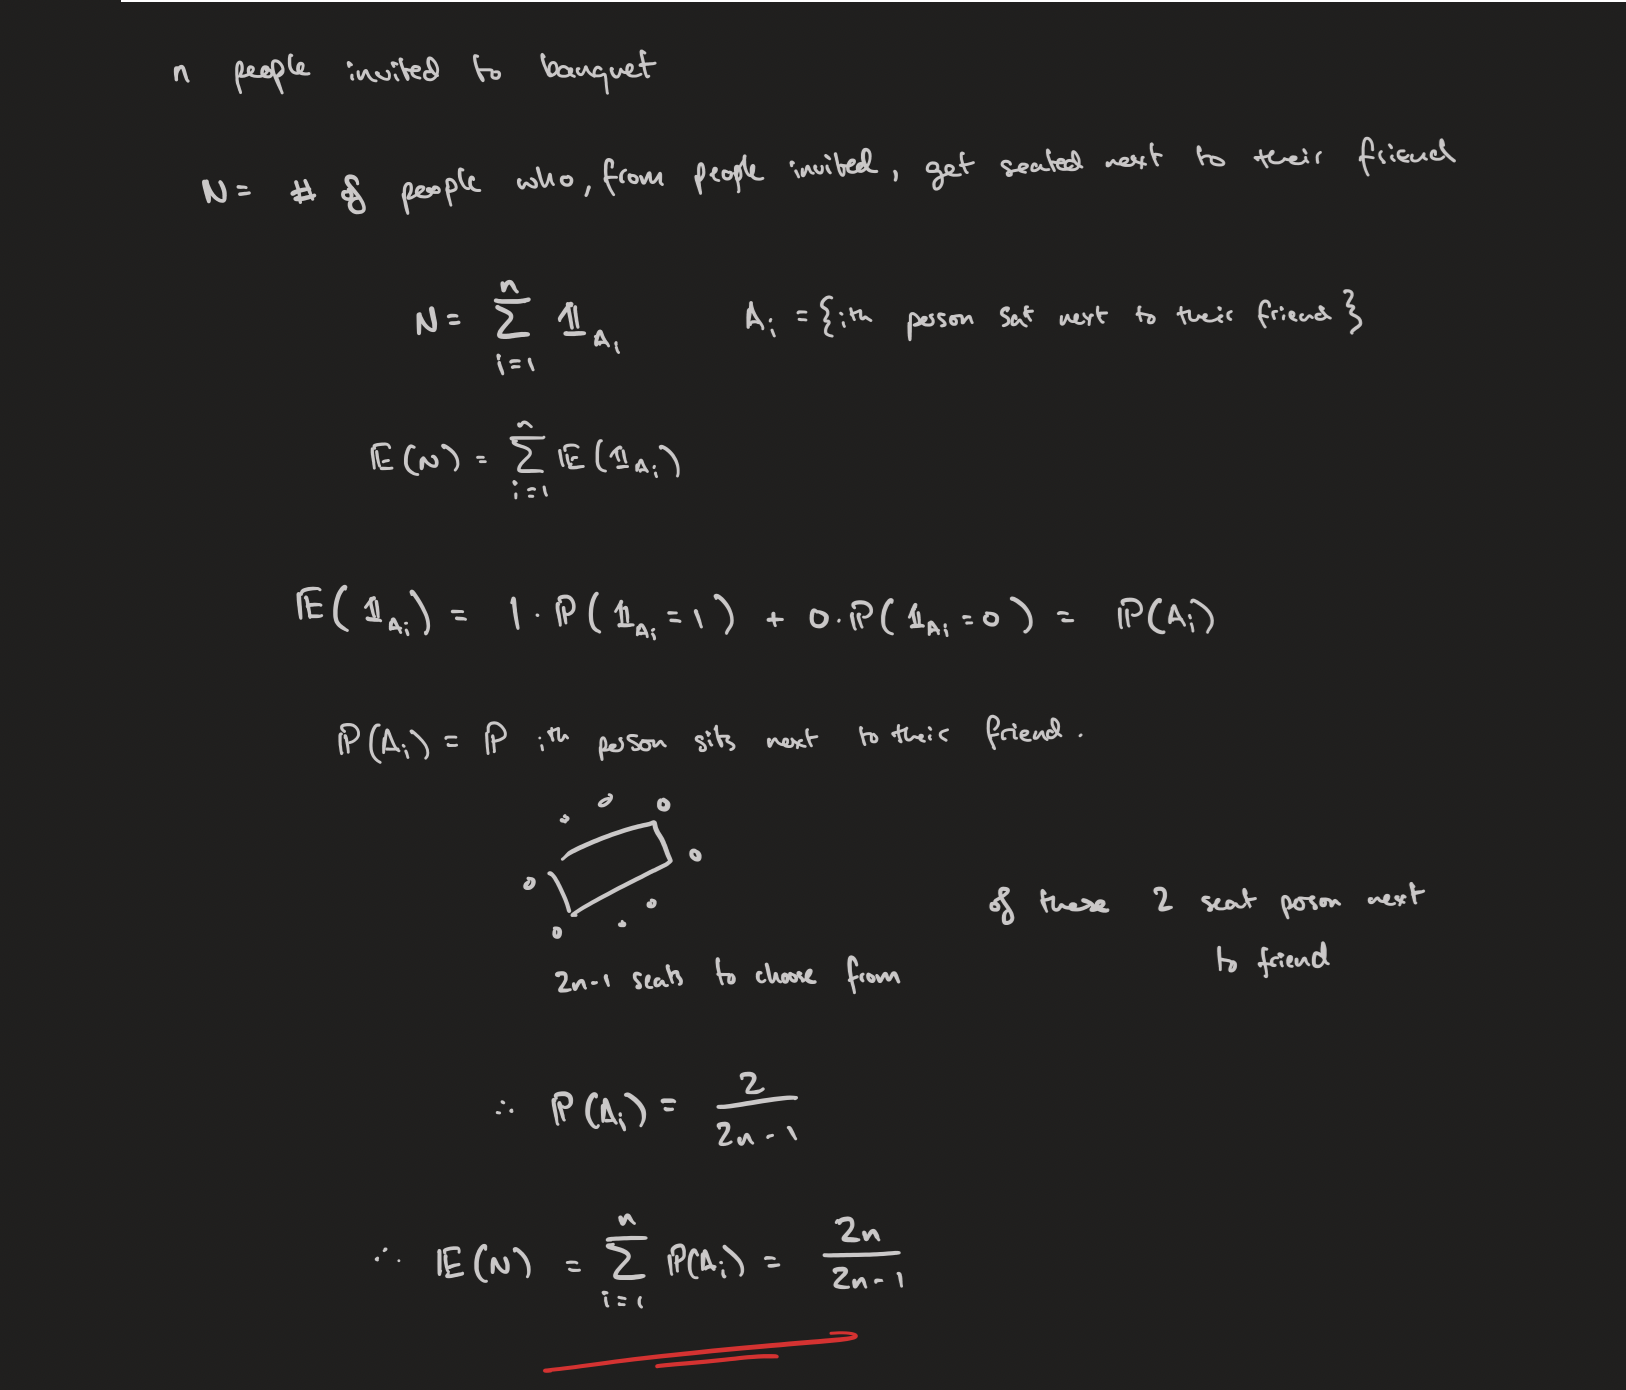 n people invited to banquet
N = # of people who, from people invited, get seated next to their friend
N = ∑_{i=1}^{n} 𝟙_{A_i} A_i = {ith person sat next to their friend}
𝔼(N) = ∑_{i=1}^{n} 𝔼(𝟙_{A_i})
𝔼(𝟙_{A_i}) = 1·ℙ(𝟙_{A_i} = 1) + 0·ℙ(𝟙_{A_i} = 0) = ℙ(A_i)
ℙ(A_i) = ℙ ith person sits next to their friend.
of these 2 seat person next
to friend
2n-1 seats to choose from
∴ ℙ(A_i) = 2/(2n-1)
∴ 𝔼(N) = ∑_{i=1}^{n} ℙ(A_i) = 2n/(2n-1)